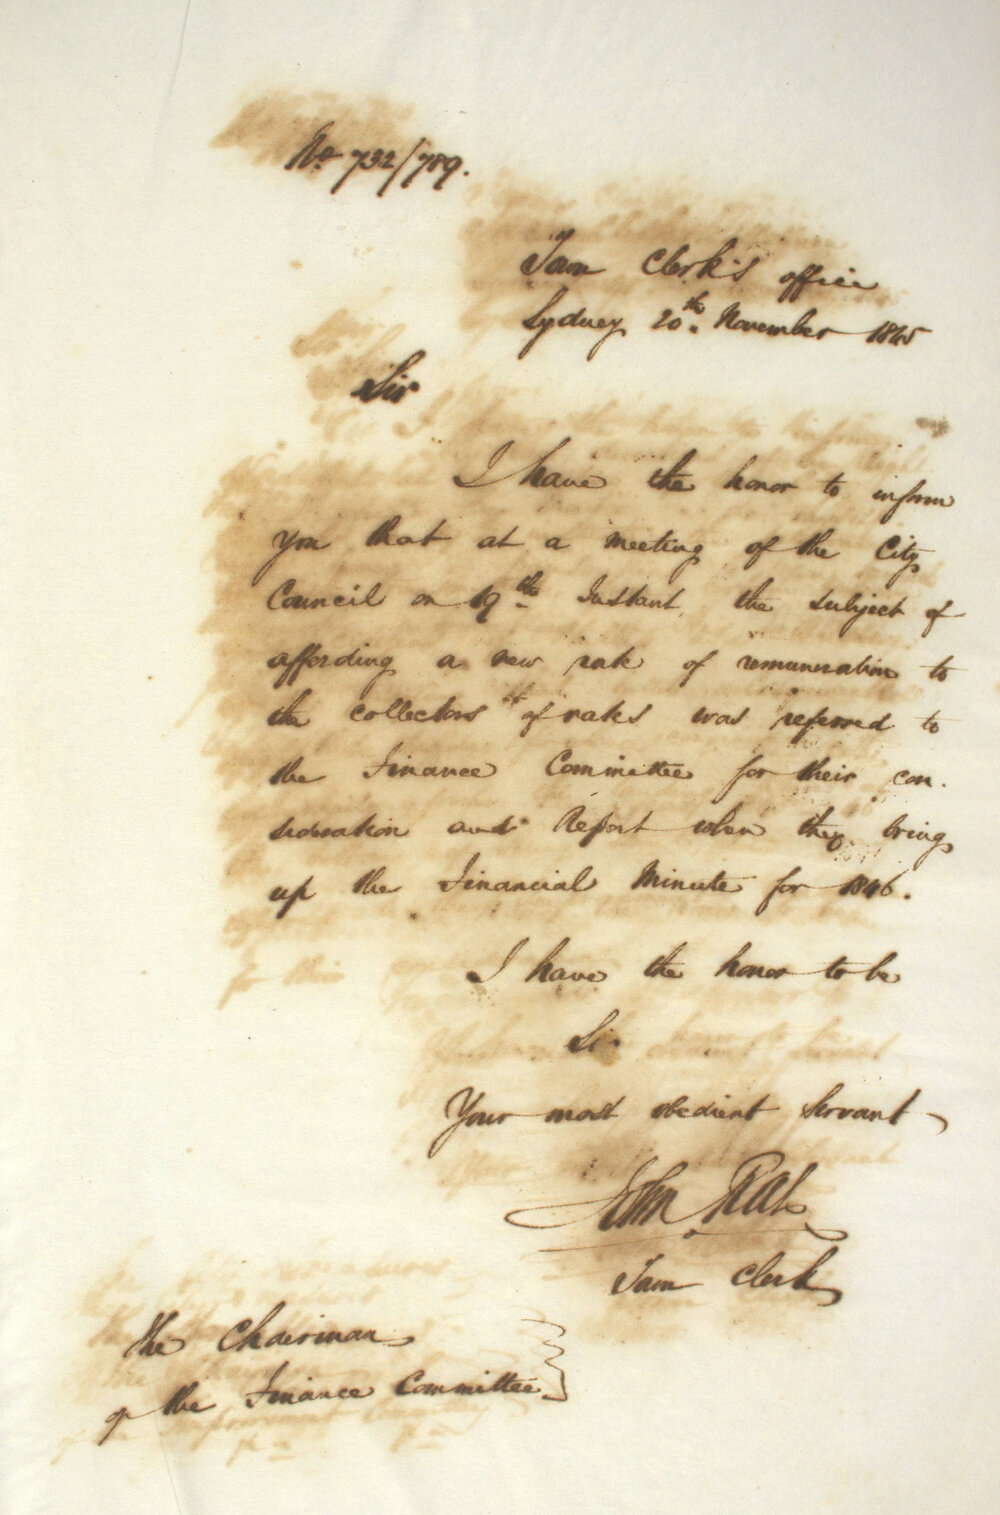 No 732/789.
Town Clerk's office
Sydney 20th November 1845
Sir
I have the honor to inform
you that at a meeting of the City
Council on 19th Instant, the subject of
affording a new rate of remuneration to
the collectors of rates was referred to
the Finance Committee for their con-
sideration and Report when they bring
up the Financial Minute for 1846.
I have the honor to be
Sir
Your most obedient servant
John Rae
Town Clerk
The Chairman
of the Finance Committee